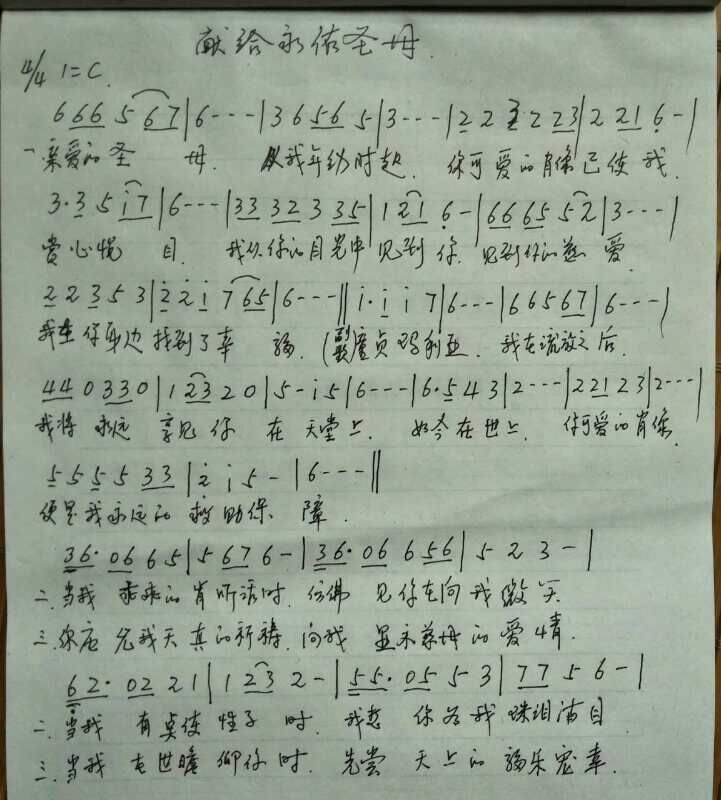 献给永佑圣母
4/4 1=C
6 66 5 67|6---|3 6 56 5|3---|2 2 3 2 23|2 21 6-|
一亲爱的圣 母. 从我年幼时起. 你可爱的肖像已使我.
3·3 5 i7|6---|33 32 3 35|1 21 6-|66 65 52|3---|
赏心悦 目. 我从你的目光中 见到 你. 见到你的慈 爱
2 2 3 5 3|2 2 i 7 65|6---‖i· i i 7|6---|6 6 5 67|6---|
我在你身边找到了幸 福. (童贞玛利亚. 我在流放之后.
44 0 33 0|1 23 2 0|5-i5|6---|6·5 4 3|2---|2 21 2 3|2---|
我将 永远 享见你 在 天堂上. 如今在世上. 你可爱的肖像.
5 5 5 5 33|2 i 5-|6---‖
便是我永远的救助保 障.
36· 06 6 5|5 67 6-|36· 06 6 56|5 2 3-|
二.当我 乖乖的肯听话时. 仿佛 见你在向我微笑
三.你应 允我天真的祈祷. 向我 显示慈母的爱情.
62· 02 2 1|1 23 2-|55· 05 5 3|77 5 6-|
二.当我 有点使性子时. 我惹 你为我珠泪满目
三.当我 在世瞻仰你时. 先尝 天上的福乐宠幸.